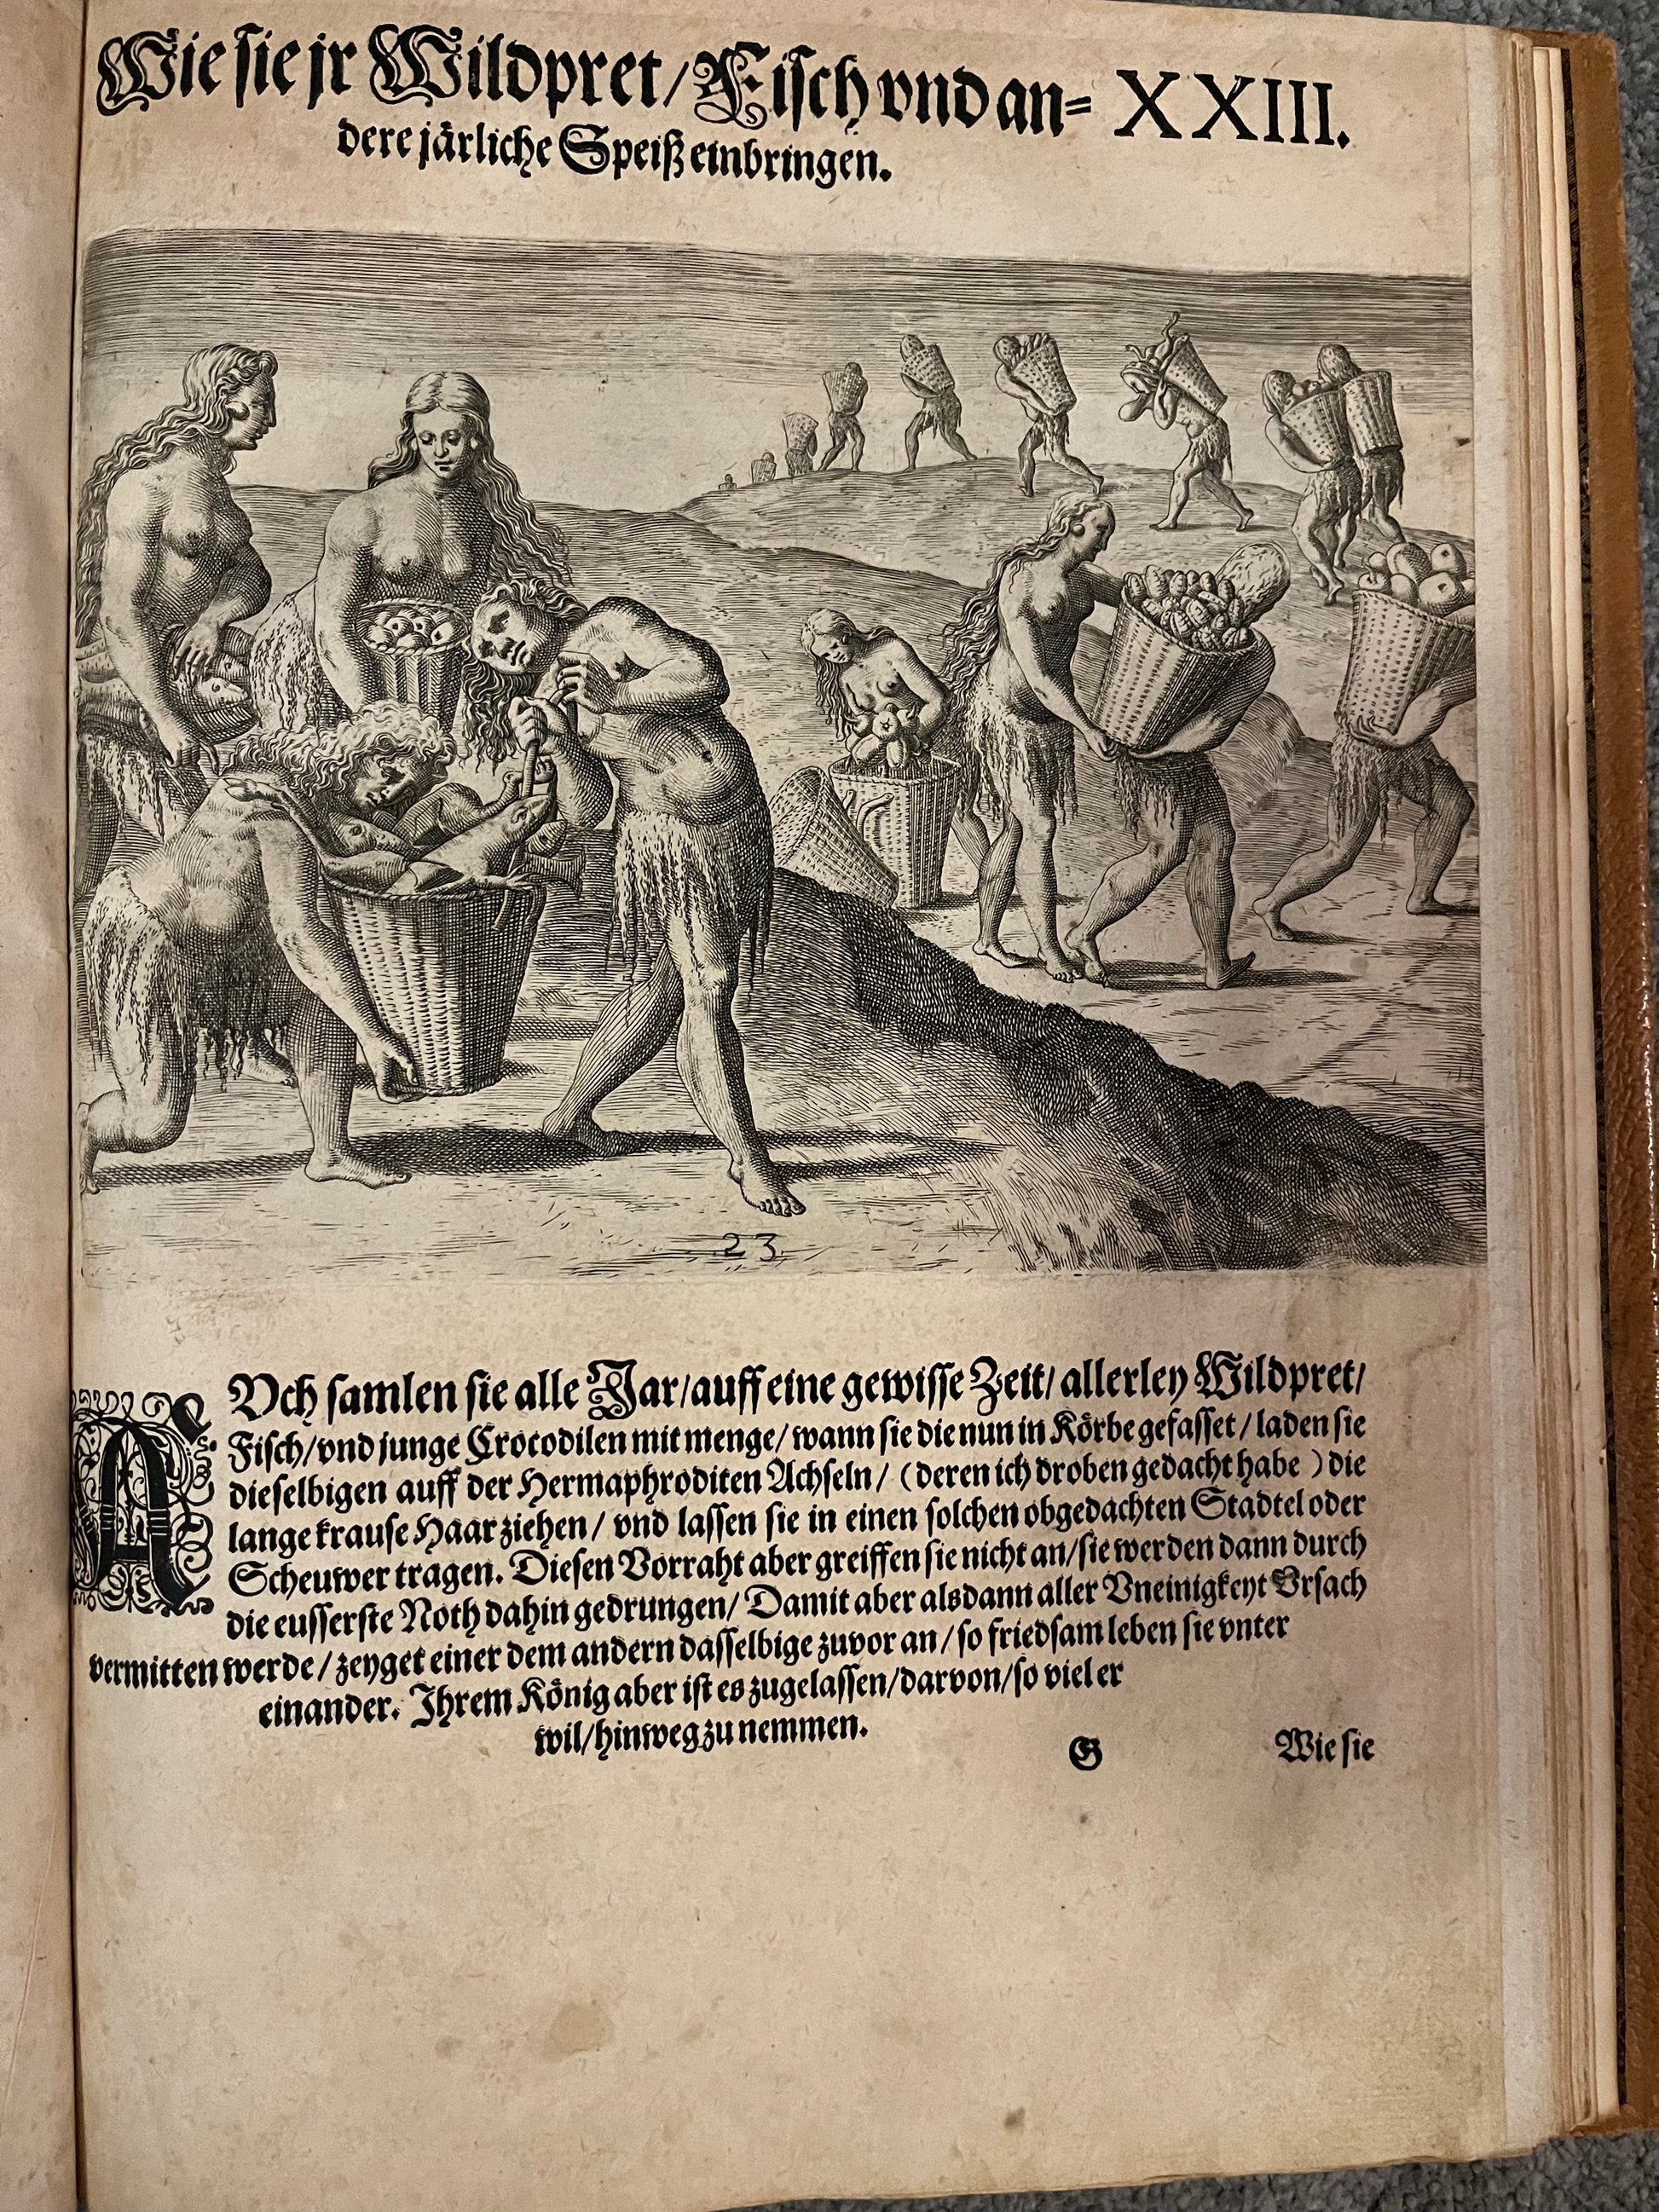 Wie sie jr Wildpret/ Fisch vnd an= XXIII.
dere järliche Speiß einbringen.
23
AVch samlen sie alle Jar/ auff eine gewisse Zeit/ allerley Wildpret/
Fisch/ vnd junge Crocodilen mit menge/ wann sie die nun in Körbe gefasset/ laden sie
dieselbigen auff der Hermaphroditen Achseln/ (deren ich droben gedacht habe) die
lange krause Haar ziehen/ vnd lassen sie in einen solchen obgedachten Stadtel oder
Scheuwer tragen. Diesen Vorraht aber greiffen sie nicht an/ sie werden dann durch
die eusserste Noth dahin gedrungen/ Damit aber alsdann aller Vneinigkeyt Vrsach
vermitten werde/ zeyget einer dem andern dasselbige zuvor an/ so friedsam leben sie vnter
einander. Ihrem König aber ist es zugelassen/ darvon/ so viel er
wil/ hinweg zu nemmen.
G Wie sie